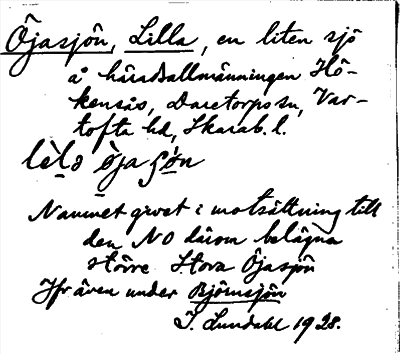 Öjasjön, Lilla, en liten sjö
å häradsallmänningen Hö-
kensås, Daretorps sn, Var-
tofta hd, Skarab. l.
öja
Namnet givet i motsättning till
den NO därom belägna
större Stora Öjasjön
Jfr även under Björnsjön
I. Lundahl 1928.